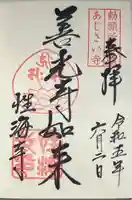 あじさい寺
奉拝
令和五年
六月二日
善光寺如来
性海寺